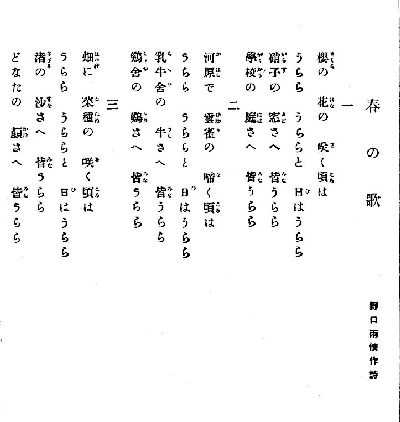 春の歌
野口雨情作詩
一
櫻の 花の 咲く頃は
うらら うららと 日はうらら
硝子の 窓さへ 皆うらら
學校の 庭さへ 皆うらら
二
河原で 雲雀の 啼く頃は
うらら うららと 日はうらら
乳牛舍の 牛さへ 皆うらら
鷄舍の 鷄さへ 皆うらら
三
畑に 菜種の 咲く頃は
うらら うららと 日はうらら
渚の 沙さへ 皆うらら
どなたの 顏さへ 皆うらら